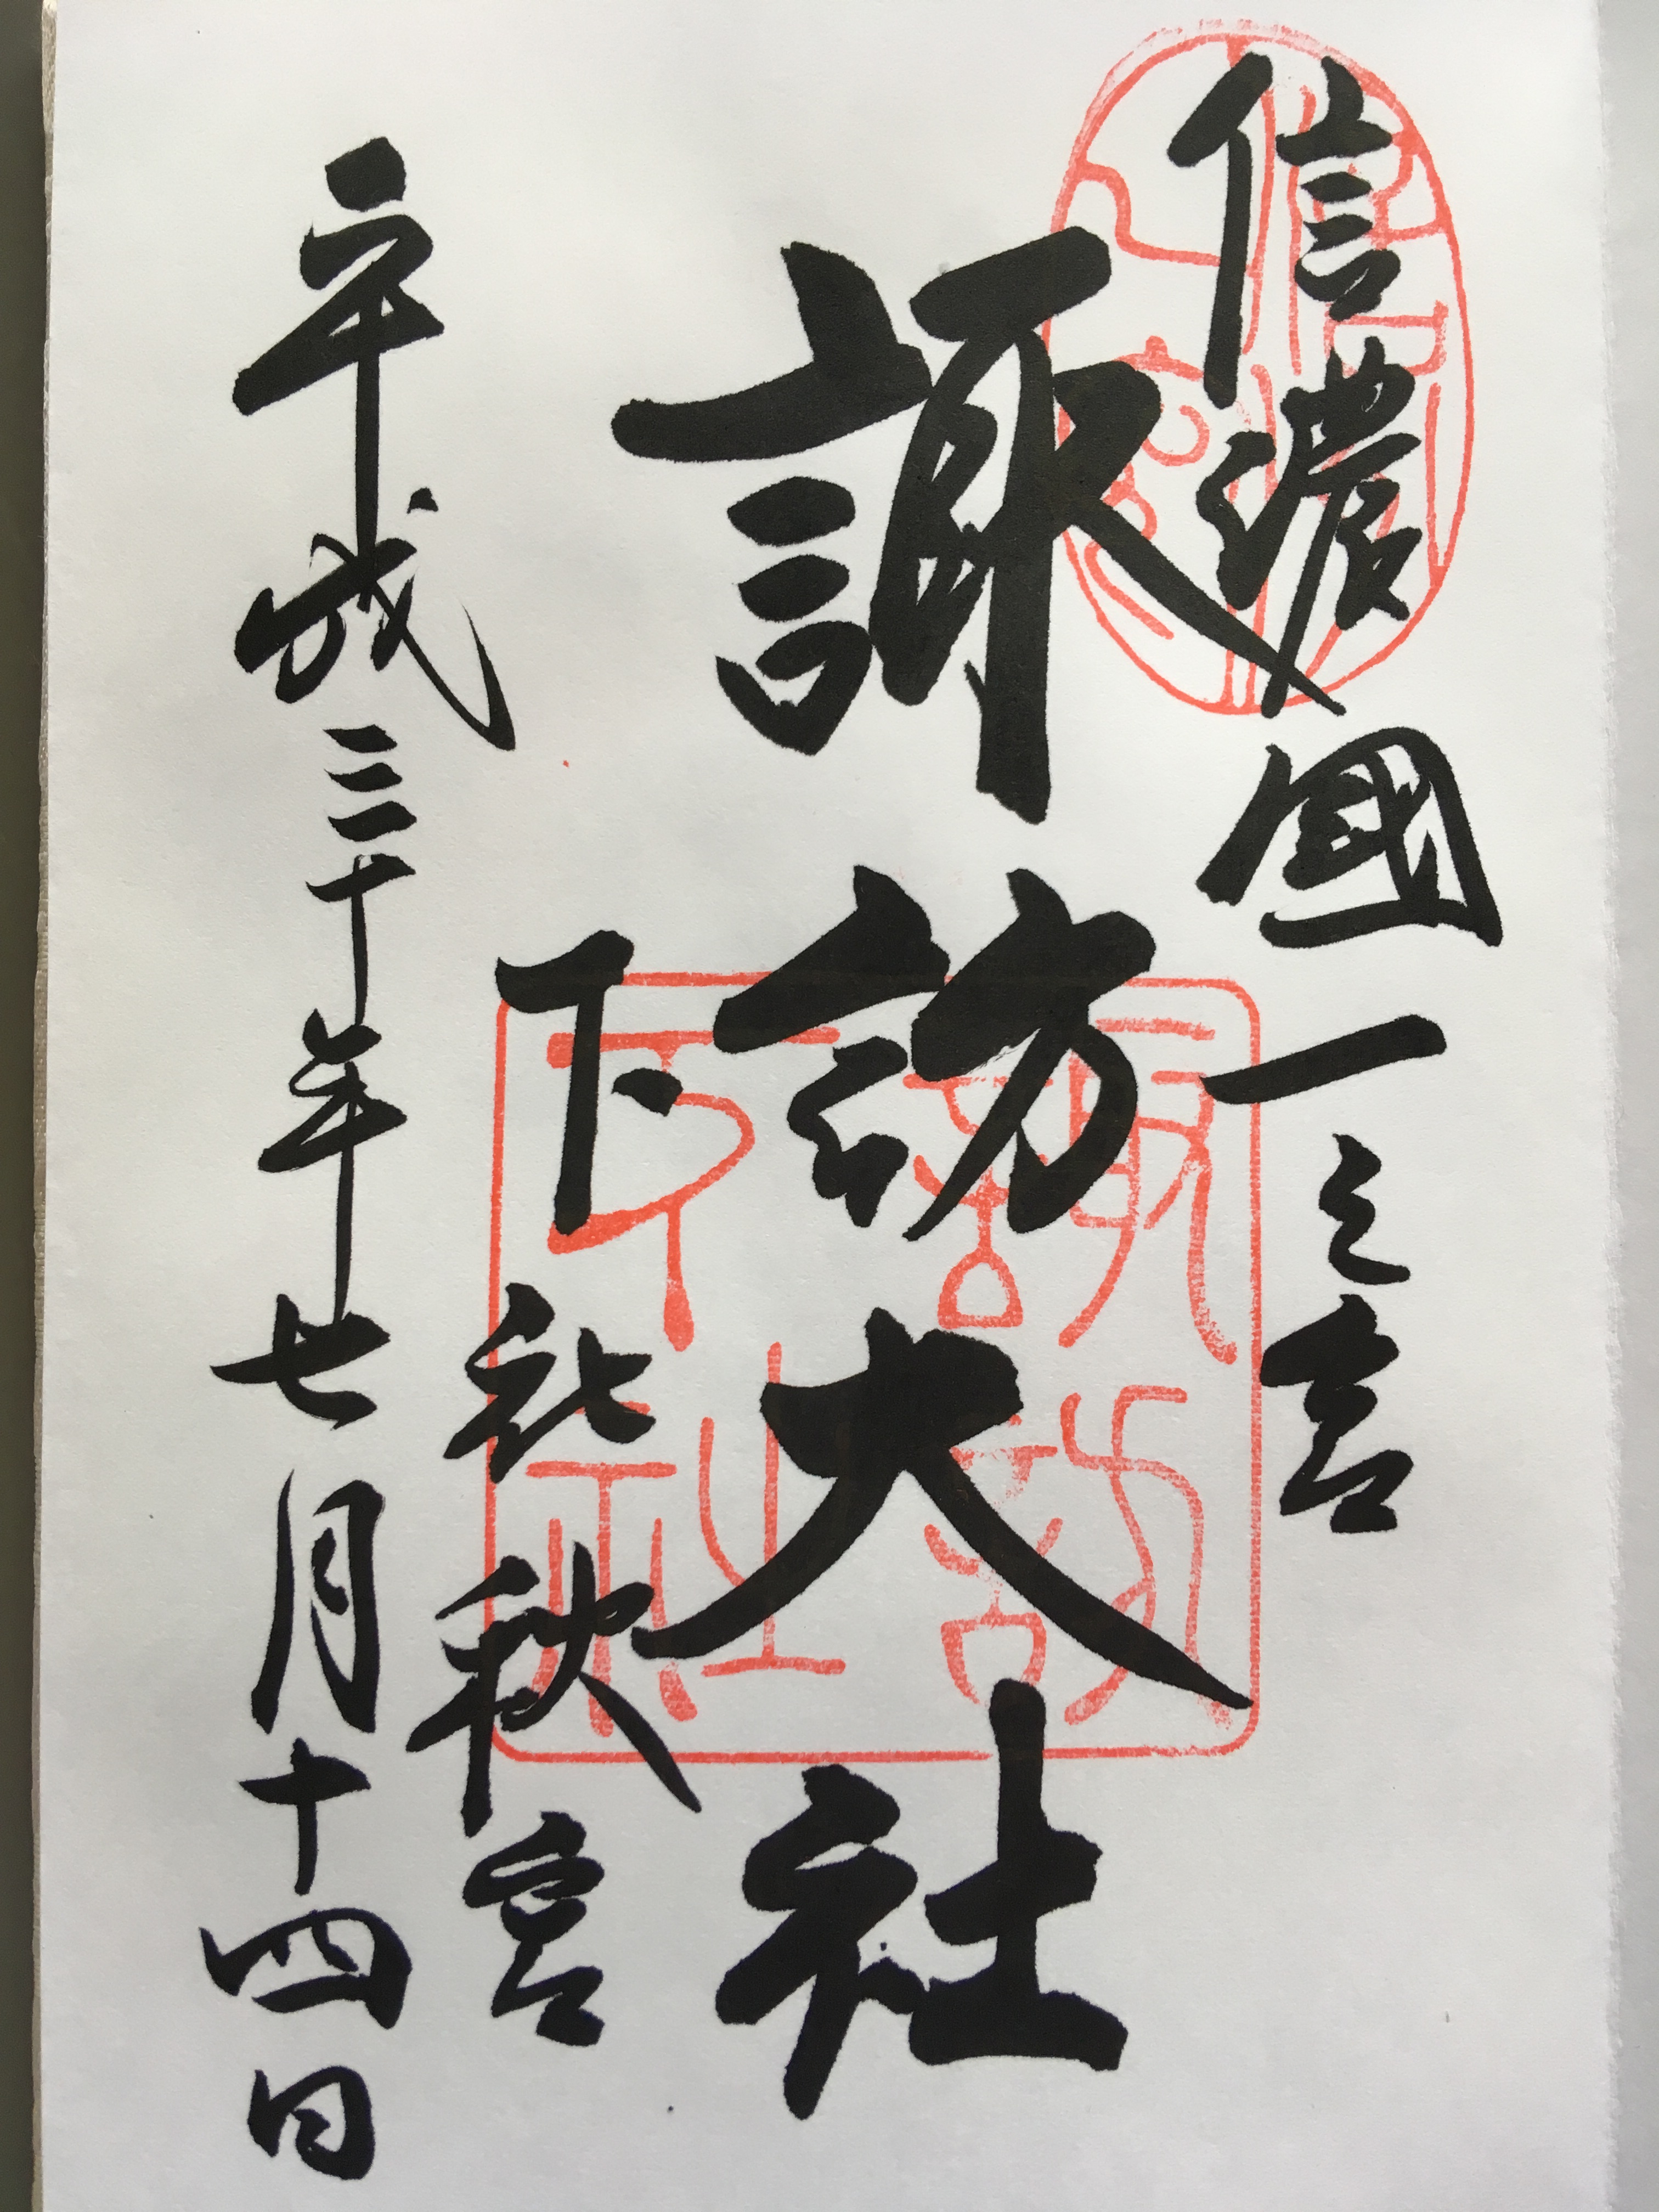 信濃國一之宮
諏訪大社
下社秋宮
平成三十年七月十四日
諏訪下社